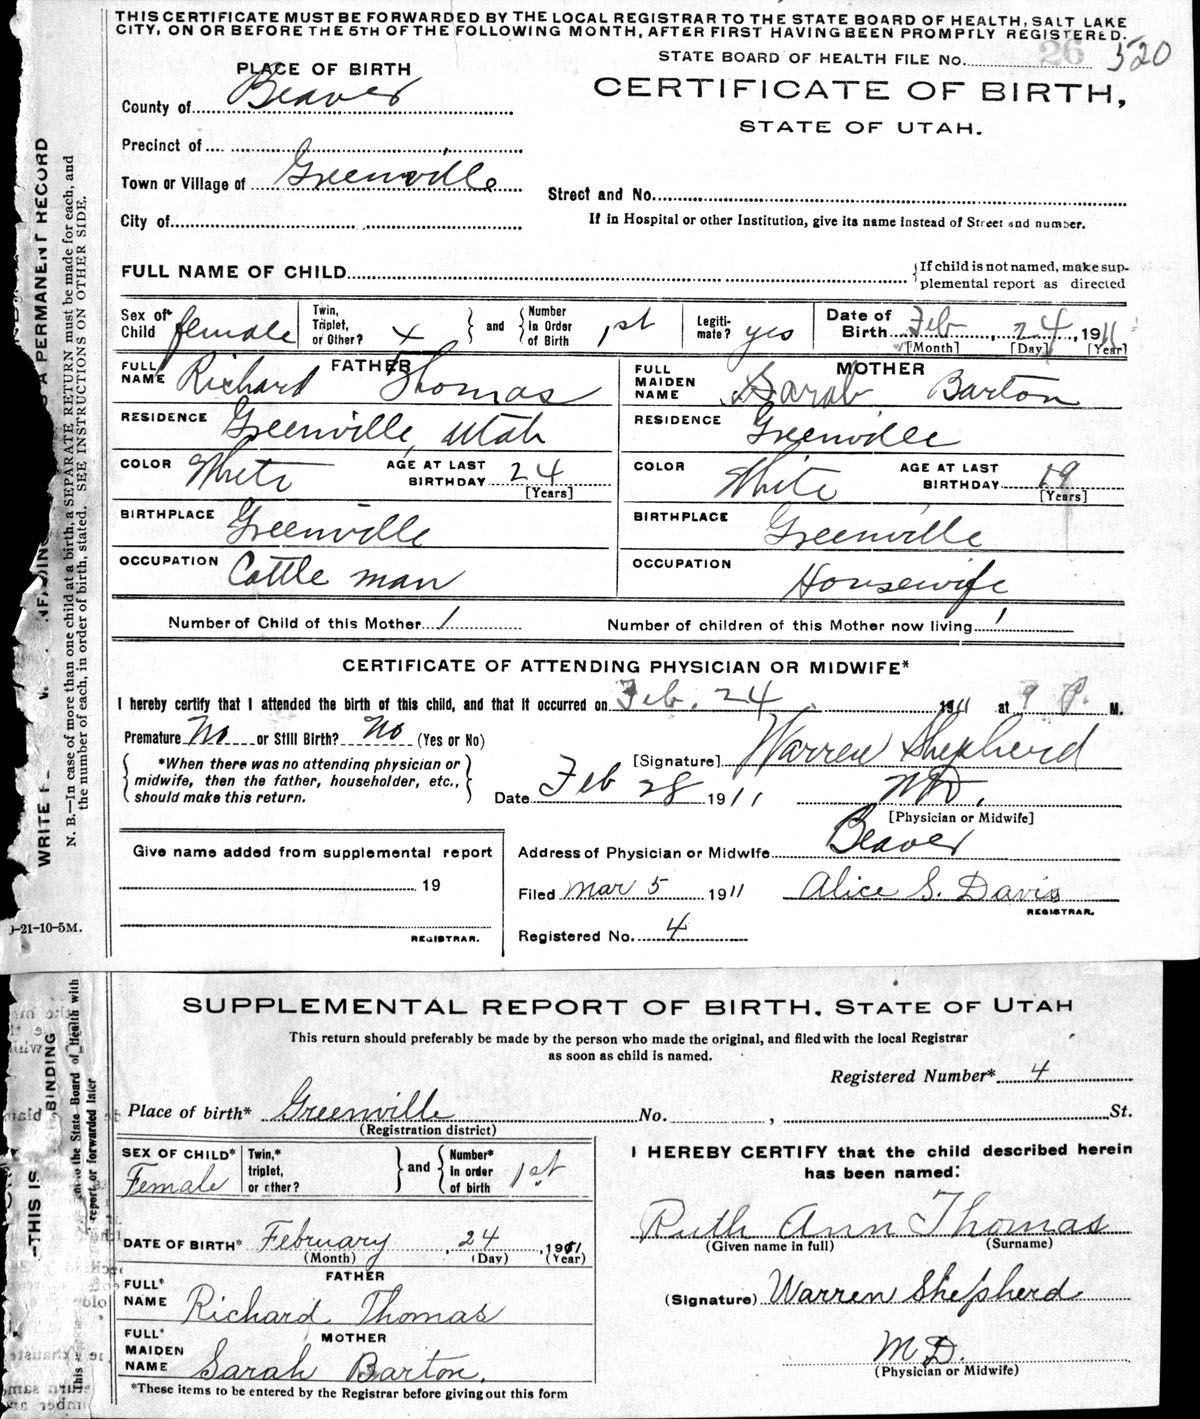 THIS CERTIFICATE MUST BE FORWARDED BY THE LOCAL REGISTRAR TO THE STATE BOARD OF HEALTH, SALT LAKE
CITY, ON OR BEFORE THE 5TH OF THE FOLLOWING MONTH, AFTER FIRST HAVING BEEN PROMPTLY REGISTERED.
STATE BOARD OF HEALTH FILE No. 26 520
PLACE OF BIRTH
CERTIFICATE OF BIRTH,
STATE OF UTAH.
County of Beaver
Precinct of
Town or Village of Greenville
Street and No.
City of
If in Hospital or other Institution, give its name instead of Street and number.
FULL NAME OF CHILD
{If child is not named, make sup-
plemental report as directed
Sex of Child female
Twin, Triplet, or Other? x } and { Number in Order of Birth 1st
Legiti-mate? yes
Date of Birth Feb, 24, 1911
[Month] [Day] [Year]
FATHER
FULL NAME Richard Thomas
RESIDENCE Greenville, Utah
COLOR White AGE AT LAST BIRTHDAY 24
[Years]
BIRTHPLACE Greenville
OCCUPATION Cattle man
MOTHER
FULL MAIDEN NAME Sarah Barton
RESIDENCE Greenville
COLOR White AGE AT LAST BIRTHDAY 19
[Years]
BIRTHPLACE Greenville
OCCUPATION Housewife
Number of Child of this Mother 1 Number of children of this Mother now living 1
CERTIFICATE OF ATTENDING PHYSICIAN OR MIDWIFE*
I hereby certify that I attended the birth of this child, and that it occurred on Feb. 24 1911 at 9 P. M.
Premature No or Still Birth? No (Yes or No)
{ *When there was no attending physician or
midwife, then the father, householder, etc.,
should make this return. }
[Signature] Warren Shepherd
Date Feb 28 1911 M.D.
[Physician or Midwife]
Address of Physician or Midwife Beaver
Give name added from supplemental report
19
REGISTRAR.
Filed Mar 5 1911 Alice S. Davis
REGISTRAR.
Registered No. 4
A PERMANENT RECORD
N. B.—In case of more than one child at a birth, a SEPARATE RETURN must be made for each, and
the number of each, in order of birth, stated. SEE INSTRUCTIONS ON OTHER SIDE.
-21-10-5M.
SUPPLEMENTAL REPORT OF BIRTH, STATE OF UTAH
This return should preferably be made by the person who made the original, and filed with the local Registrar
as soon as child is named.
Registered Number* 4
Place of birth* Greenville No. , St.
(Registration district)
SEX OF CHILD* Female
Twin,* triplet, or other? } and { Number* in order of birth 1st
DATE OF BIRTH* February, 24, 1911
(Month) (Day) (Year)
FATHER
FULL* NAME Richard Thomas
MOTHER
FULL* MAIDEN NAME Sarah Barton.
*These items to be entered by the Registrar before giving out this form
I HEREBY CERTIFY that the child described herein
has been named:
Ruth Ann Thomas
(Given name in full) (Surname)
(Signature) Warren Shepherd
M.D.
(Physician or Midwife)
THIS IS
BINDING
the State Board of Health with
report, or forwarded later